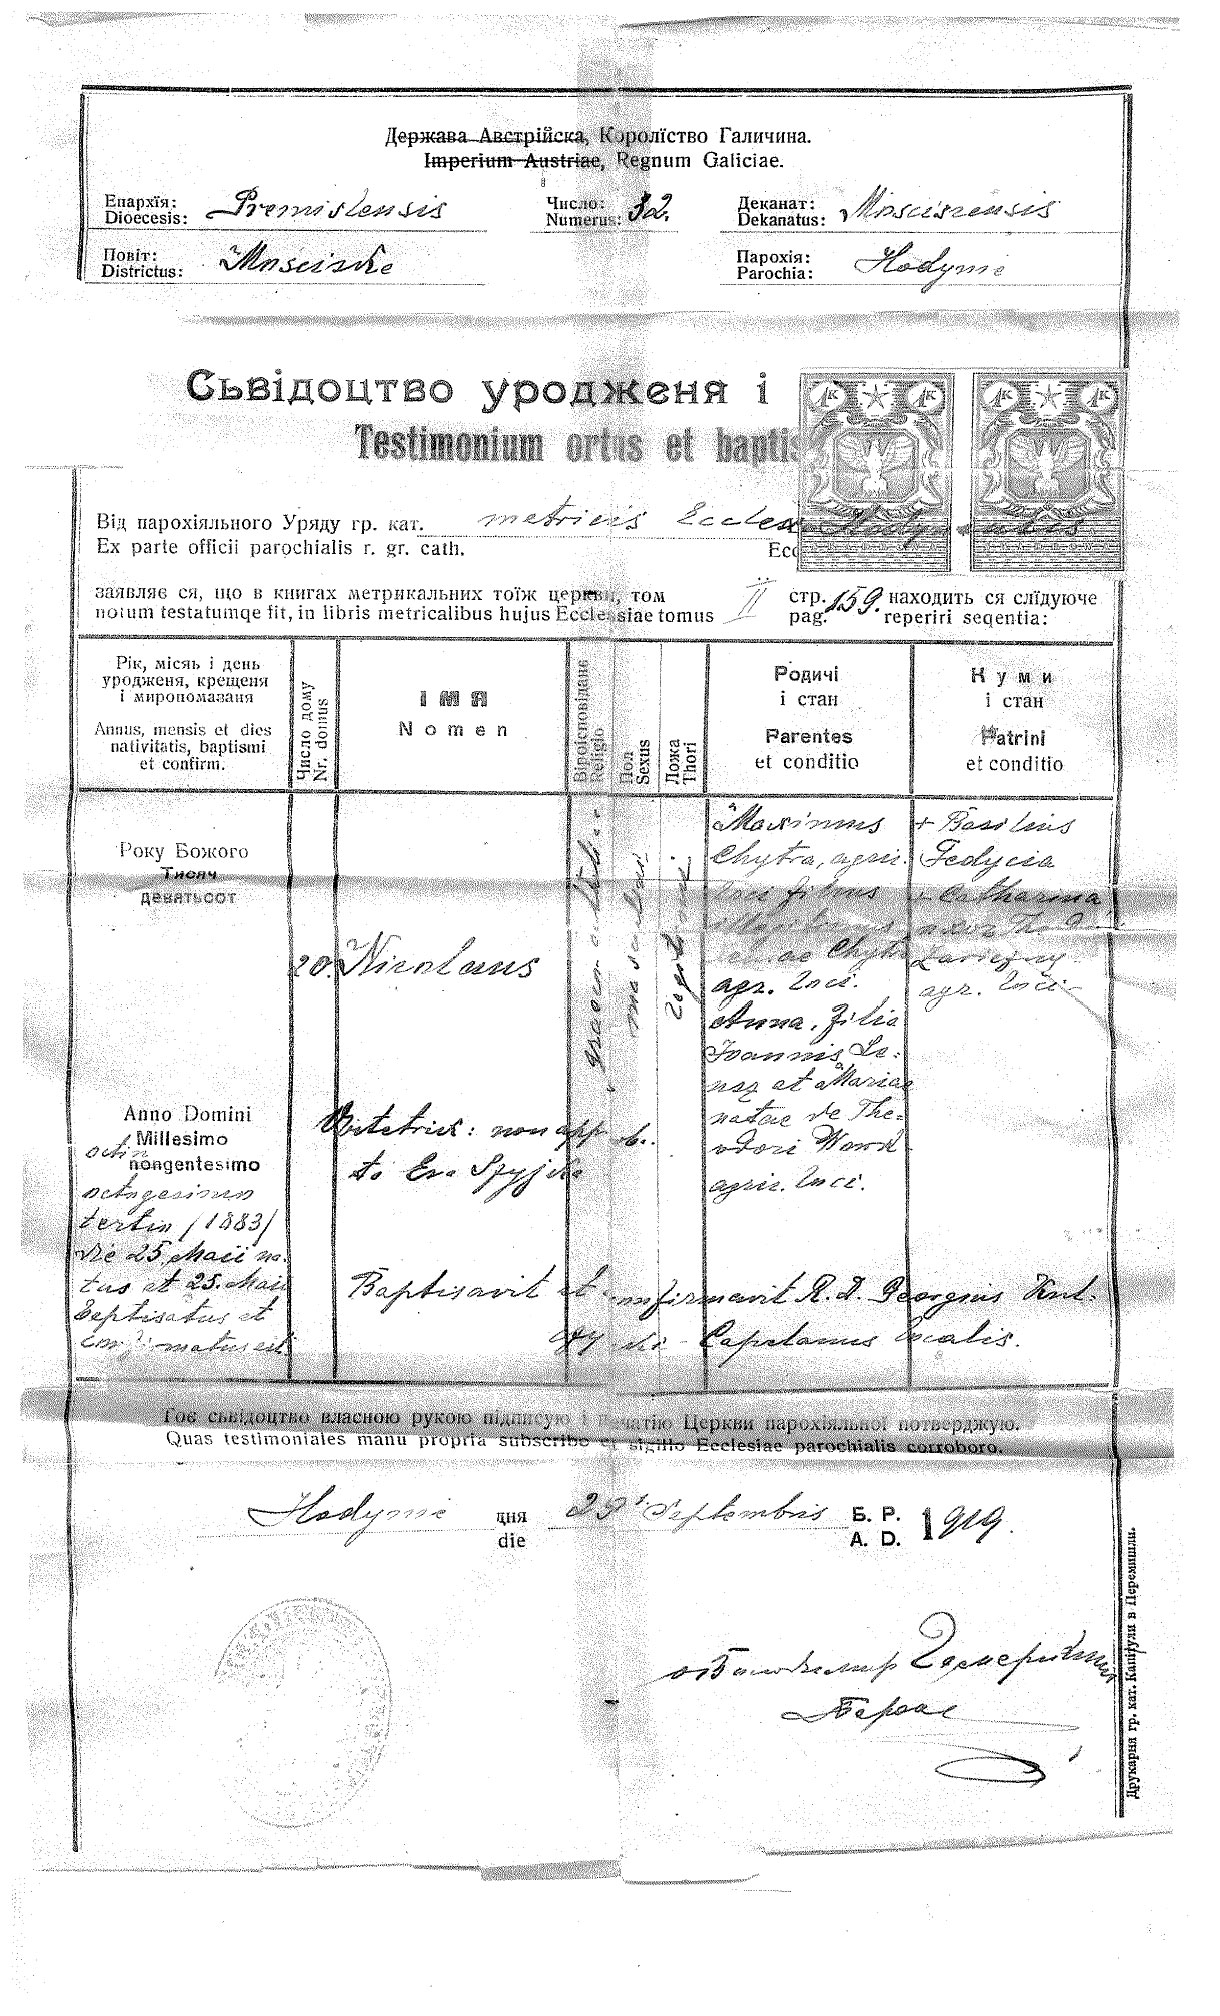 Держава Австрійска, Королїство Галичина.
Imperium Austriae, Regnum Galiciae.
Епархія: Dioecesis: Premislensis
Число: Numerus: 32.
Деканат: Dekanatus: Mosciscensis
Повіт: Districtus: Mościska
Парохія: Parochia: Hodynie
Сьвідоцтво уродженя і
Testimonium ortus et baptis
1K 1K 1K 1K
Від парохіяльного Уряду гр. кат. metricis Eccles
Ex parte officii parochialis r. gr. cath. Ecc
заявляє ся, що в книгах метрикальних тоїж церкви, том II стр. 159. находить ся слїдуюче
notum testatumqe fit, in libris metricalibus hujus Ecclesiae tomus pag. reperiri seqentia:
Рік, місяь і день
уродженя, крещеня
і миропомазаня
Annus, mensis et dies
nativitatis, baptismi
et confirm.
Число дому
Nr. domus
ІМЯ
Nomen
Віроісповідане
Religio
Пол
Sexus
Ложа
Thori
Родичі
і стан
Parentes
et conditio
Куми
і стан
Patrini
et conditio
Року Божого
Тисяч
девятьсот
Anno Domini
Millesimo
octin
nongentesimo
octogesimo
tertio /1883/
die 25 Maii na-
tus et 25. Maii
baptisatus et
confirmatus est.
20.
Nicolaus
Obstetrix: non approb.
ta Eva
Baptisavit et confirmavit R. D. Georgius
Capelanus localis.
graeco catholica
masculini
legitimi
Maximus
Chytra, agric.
loci filius
Chytra
agr. loci.
Anna, filia
Joannis Le-
et Mariae
natae de The-
odori
agric. loci.
+ Basilius
Fedycia
+ Catharina
uxor
agr. loci
Тоє сьвідоцтво власною рукою підписую і печатію Церкви парохіяльної потверджую.
Quas testimoniales manu propria subscribo et sigillo Ecclesiae parochialis corroboro.
Hodynie дня die 29 Septembris Б. Р. A. D. 1919.
Друкарня гр. кат. Капітули в Перемишли.